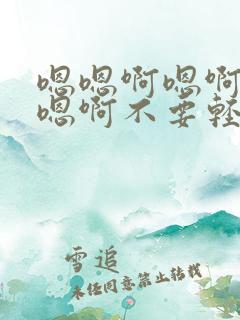 嗯嗯啊嗯啊
嗯啊不要轻
雪追
未经同意禁止转载